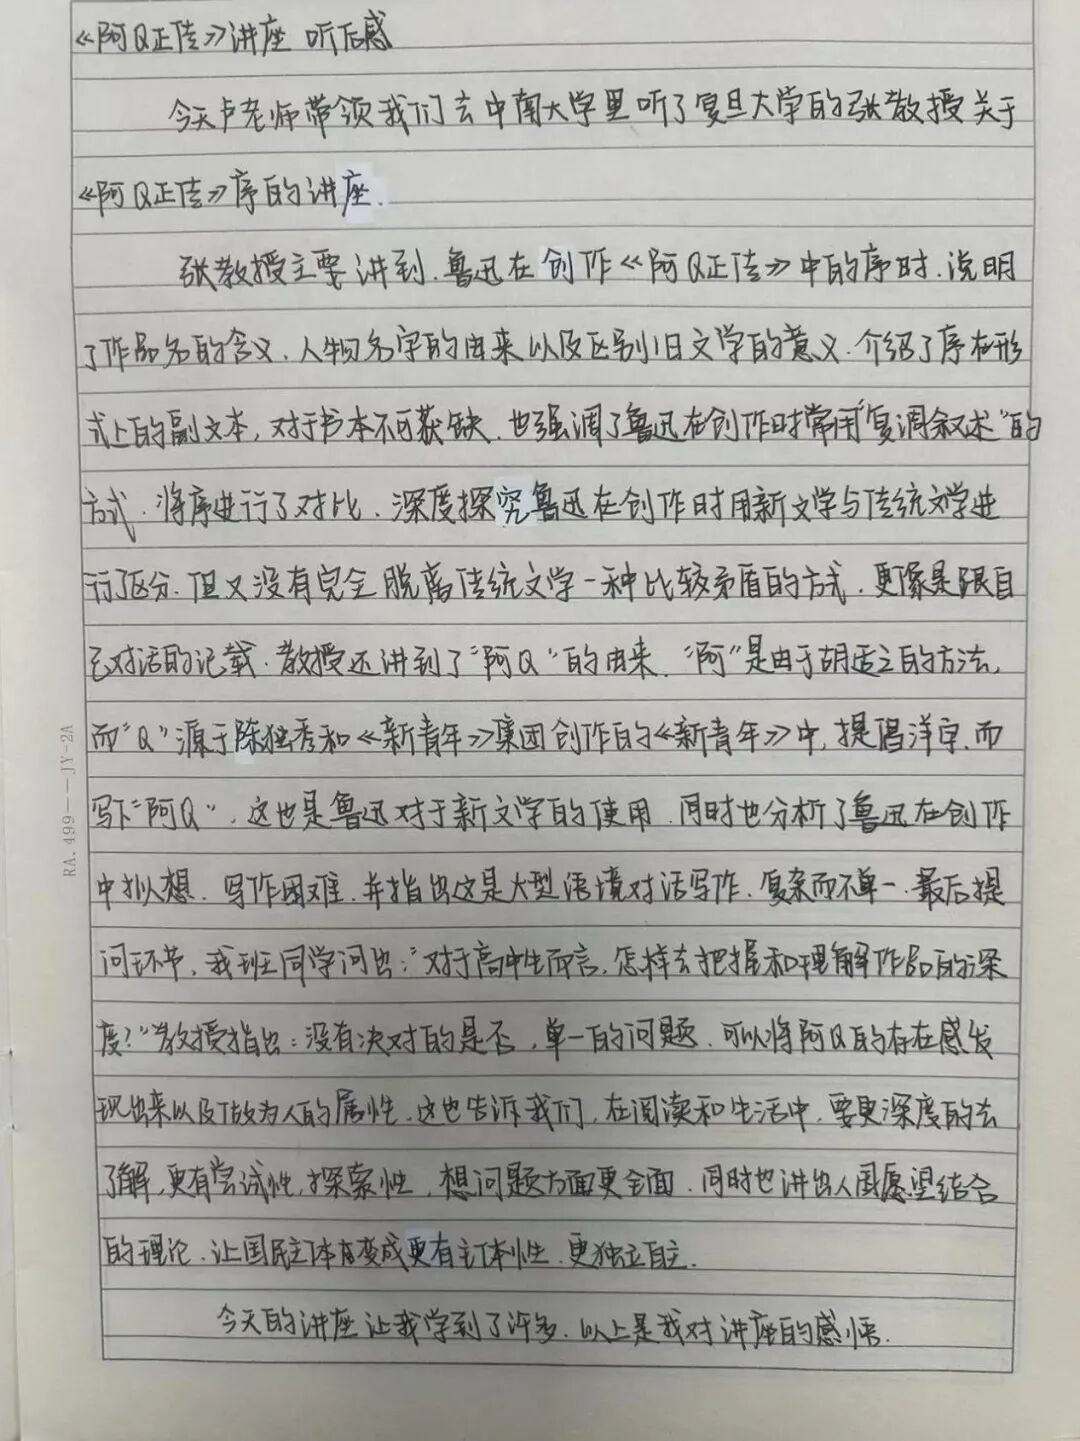 《阿Q正传》讲座 听后感
今天卢老师带领我们去中南大学里听了复旦大学的张教授关于
《阿Q正传》序的讲座.
张教授主要讲到.鲁迅在创作《阿Q正传》中的序时.说明
了作品名的含义、人物名字的由来以及区别旧文学的意义.介绍了序在形
式上的副文本,对于书本不可获缺.也强调了鲁迅在创作时常用"复调叙述"的
方式.将序进行了对比.深度探究鲁迅在创作时用新文学与传统文学进
行了区分.但又没有完全脱离传统文学一种比较矛盾的方式.更像是跟自
己对话的记载.教授还讲到了"阿Q"的由来."阿"是由于胡适之的方法,
而"Q"源于陈独秀和《新青年》集团创作的《新青年》中,提倡洋字.而
写下"阿Q".这也是鲁迅对于新文学的使用.同时也分析了鲁迅在创作
中拟想.写作困难.并指出这是大型语境对话写作.复杂而不单一.最后提
问环节,我班同学问出:"对于高中生而言,怎样去把握和理解作品的深
度?"教授指出:没有决对的是否,单一的问题.可以将阿Q的存在感发
现出来以及做为人的属性.这也告诉我们,在阅读和生活中.要更深度的去
了解,更有尝试性,探索性,想问题方面更全面.同时也讲出人国愿望结合
的理论.让国民主体变成更有主体性.更独立自主.
今天的讲座让我学到了许多.以上是我对讲座的感悟.
RA.499——JY-2A